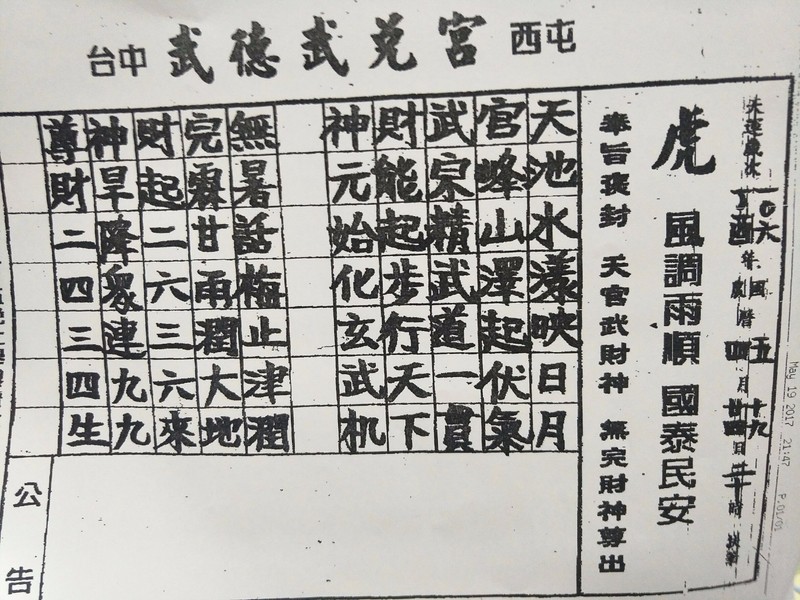 台中 武德武兌宮 西屯
May 19 2017 21:47 P.01/01
一〇六
丁酉年
虎 風調雨順 國泰民安
奉旨褒封 天官武財神 無完財神尊出
天池水漾映日月
官峰山澤起伏氣
武宗精武道一貫
財能起步行天下
神元始化玄武机
無暑話梅止津潤
完霖甘雨潤大地
財起二六三六來
神旱降眾連九九
尊財二四三四生
公告